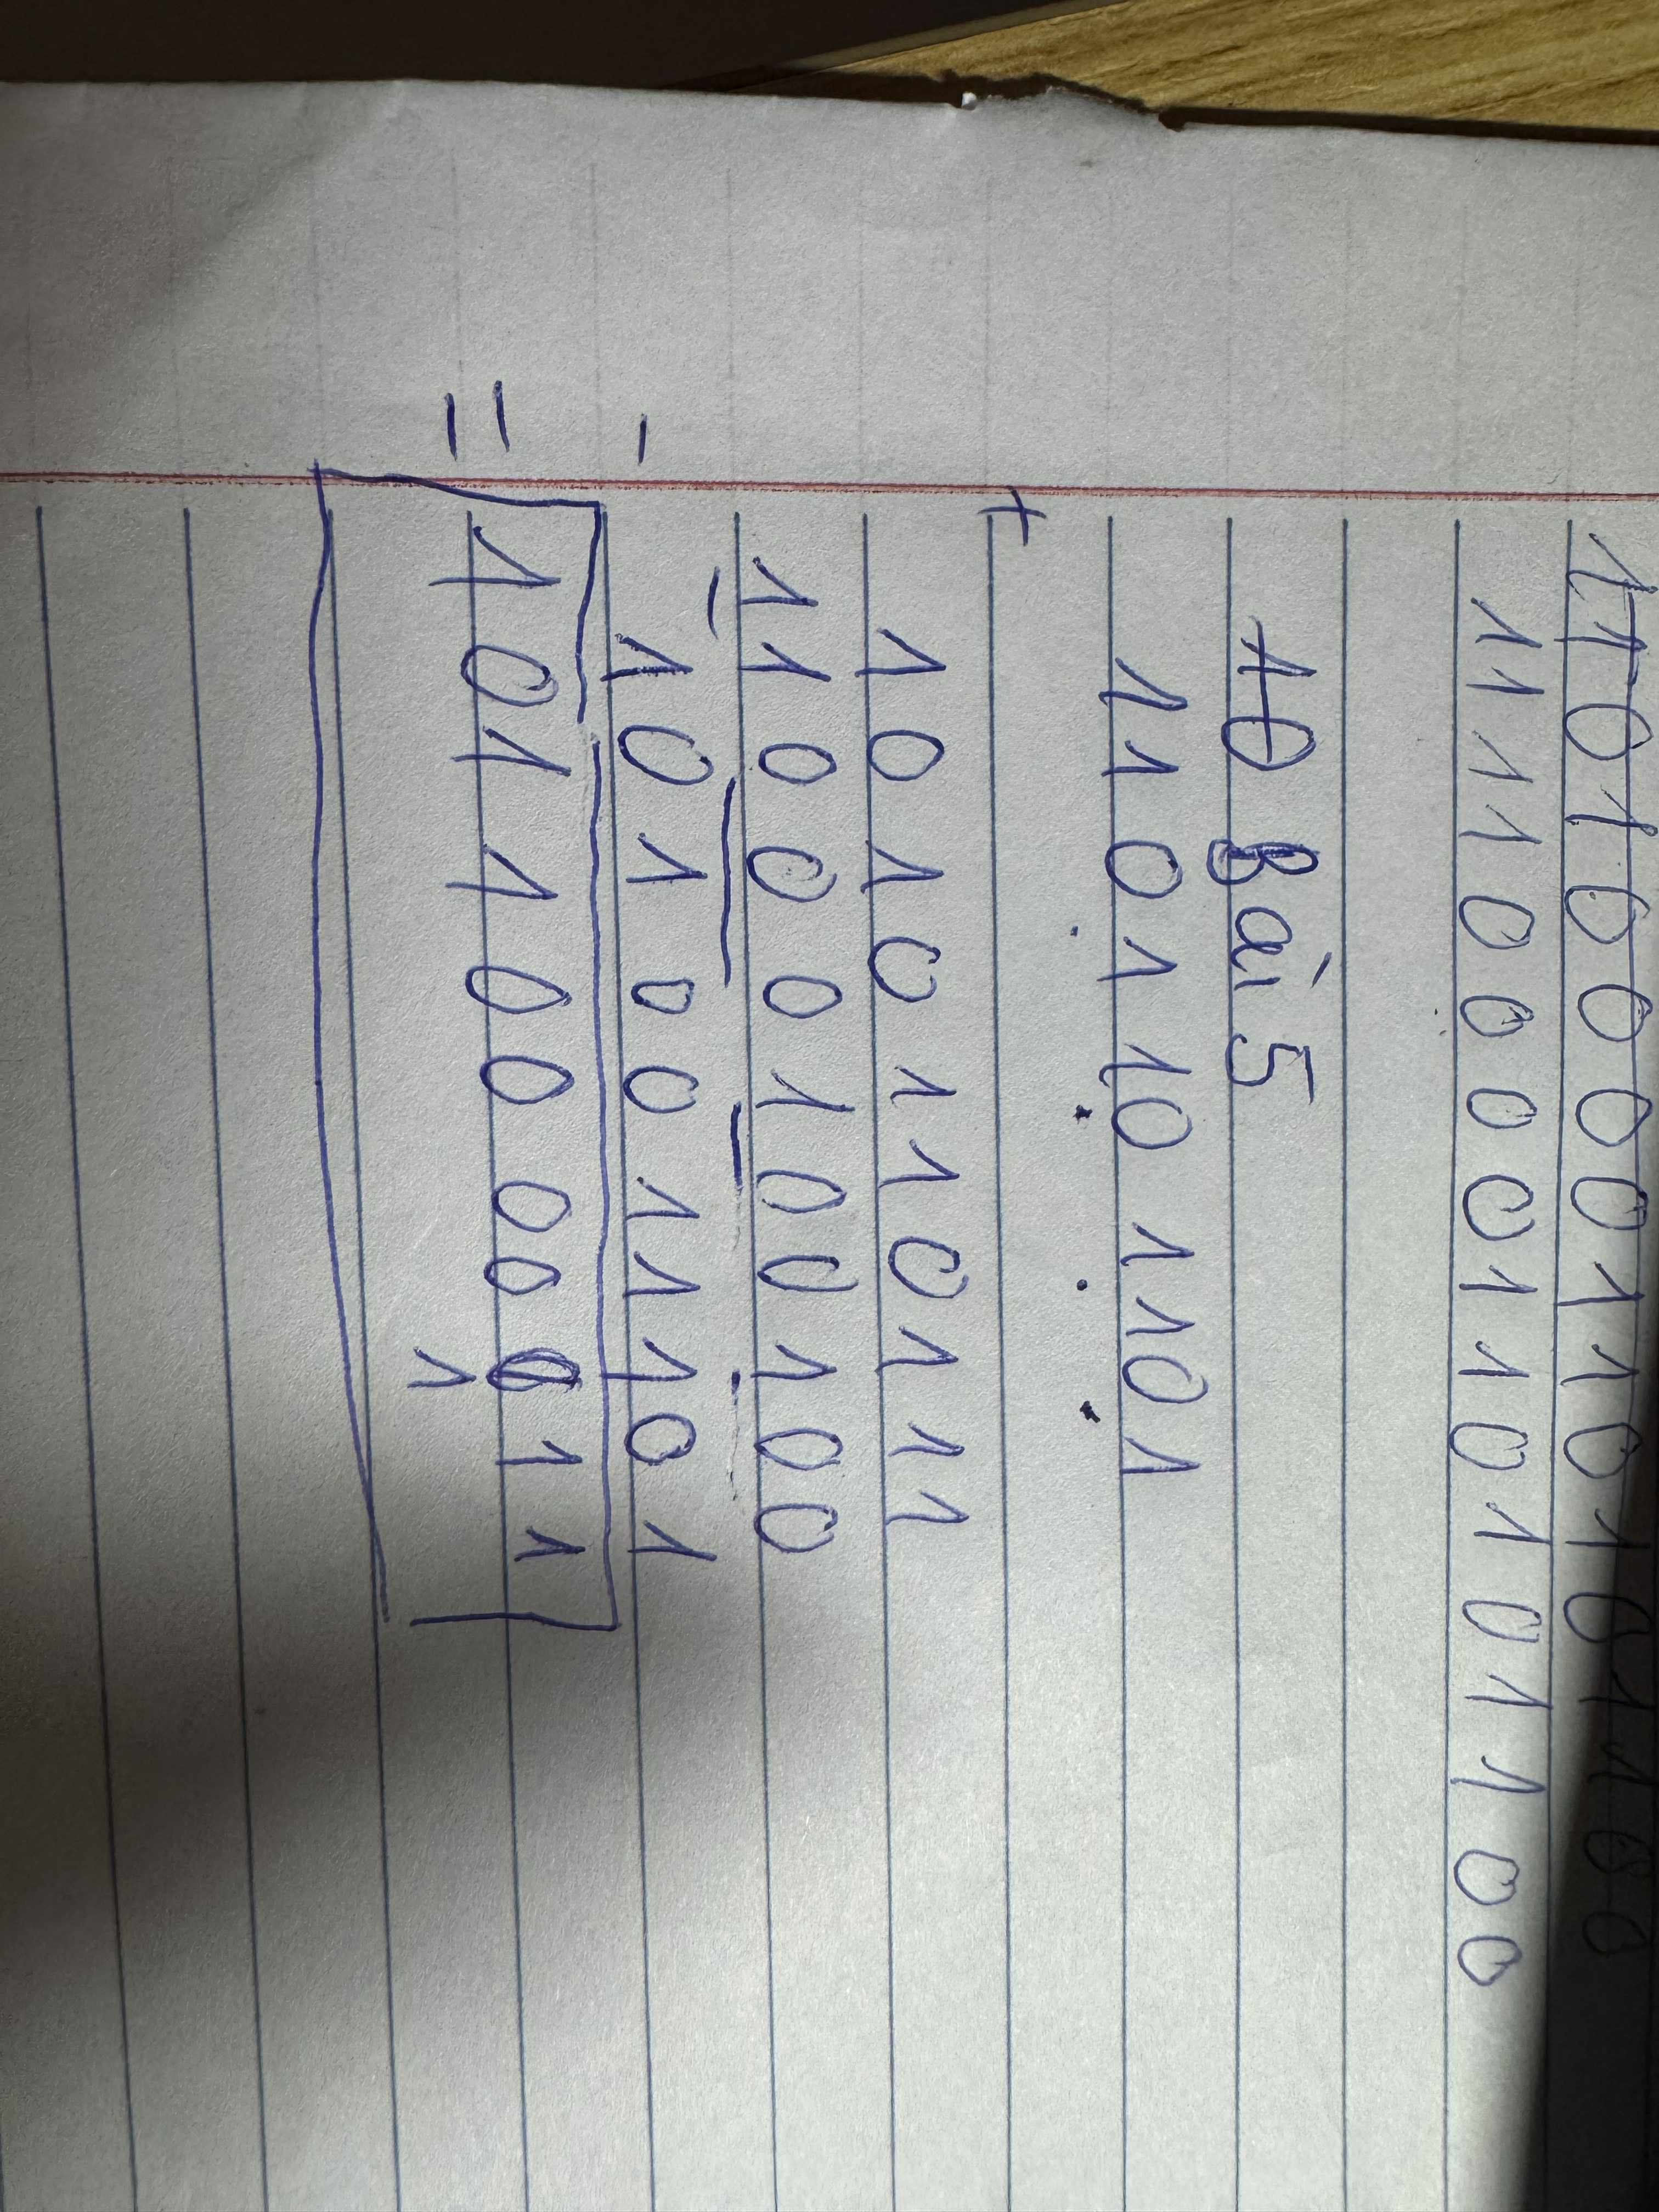 11010000110101100
11110000110101100
10 Bài 5
1101101101
+
1010110111
11000100100
- 1010011101
= 10110000 11
1